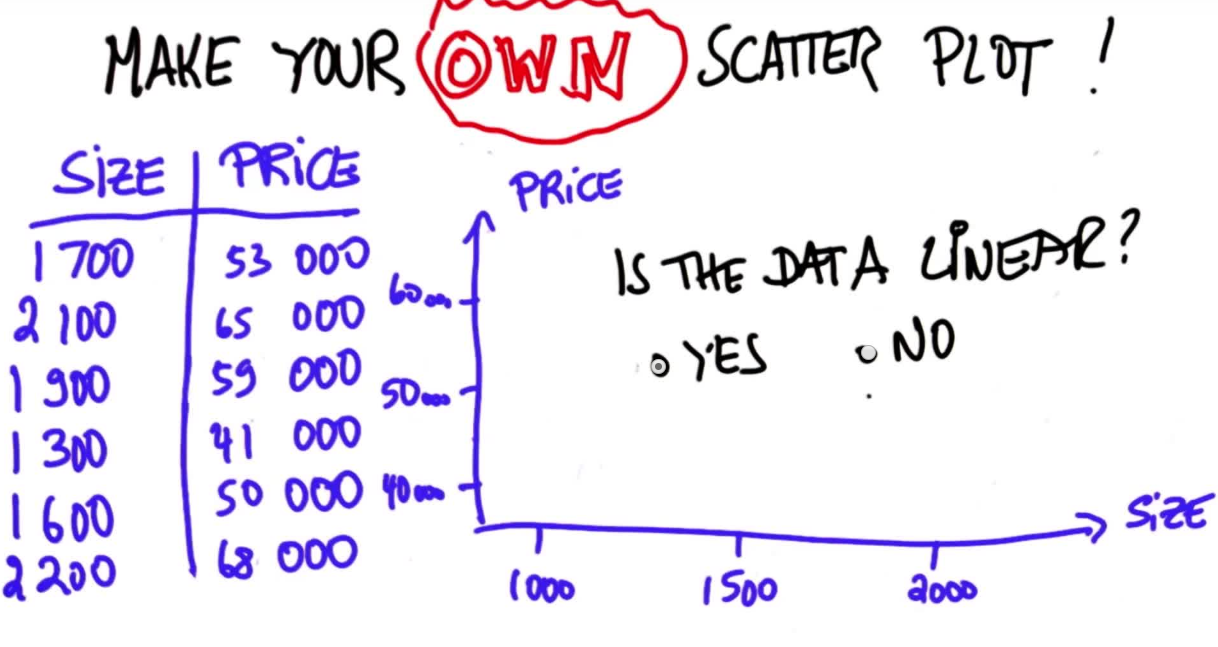 MAKE YOUR OWN SCATTER PLOT!
SiZE PRiCE
1 700 53 000
2 100 65 000
1 900 59 000
1 300 41 000
1 600 50 000
2 200 68 000
PRiCE
60000
50000
40000
1000 1500 2000
SiZE
IS THE DATA LINEAR?
YES NO